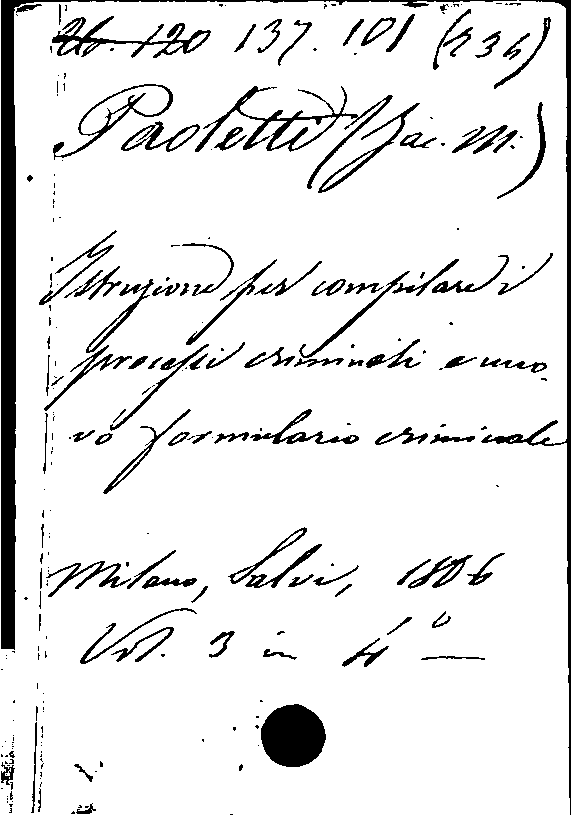 26. 120 137. 101 (236)
Paoletti (Jac. M.)
Istruzione per compilare i
processi criminali e nuo-
vo formulario criminale
Milano, Salvi, 1806
Vol. 3 in 4º